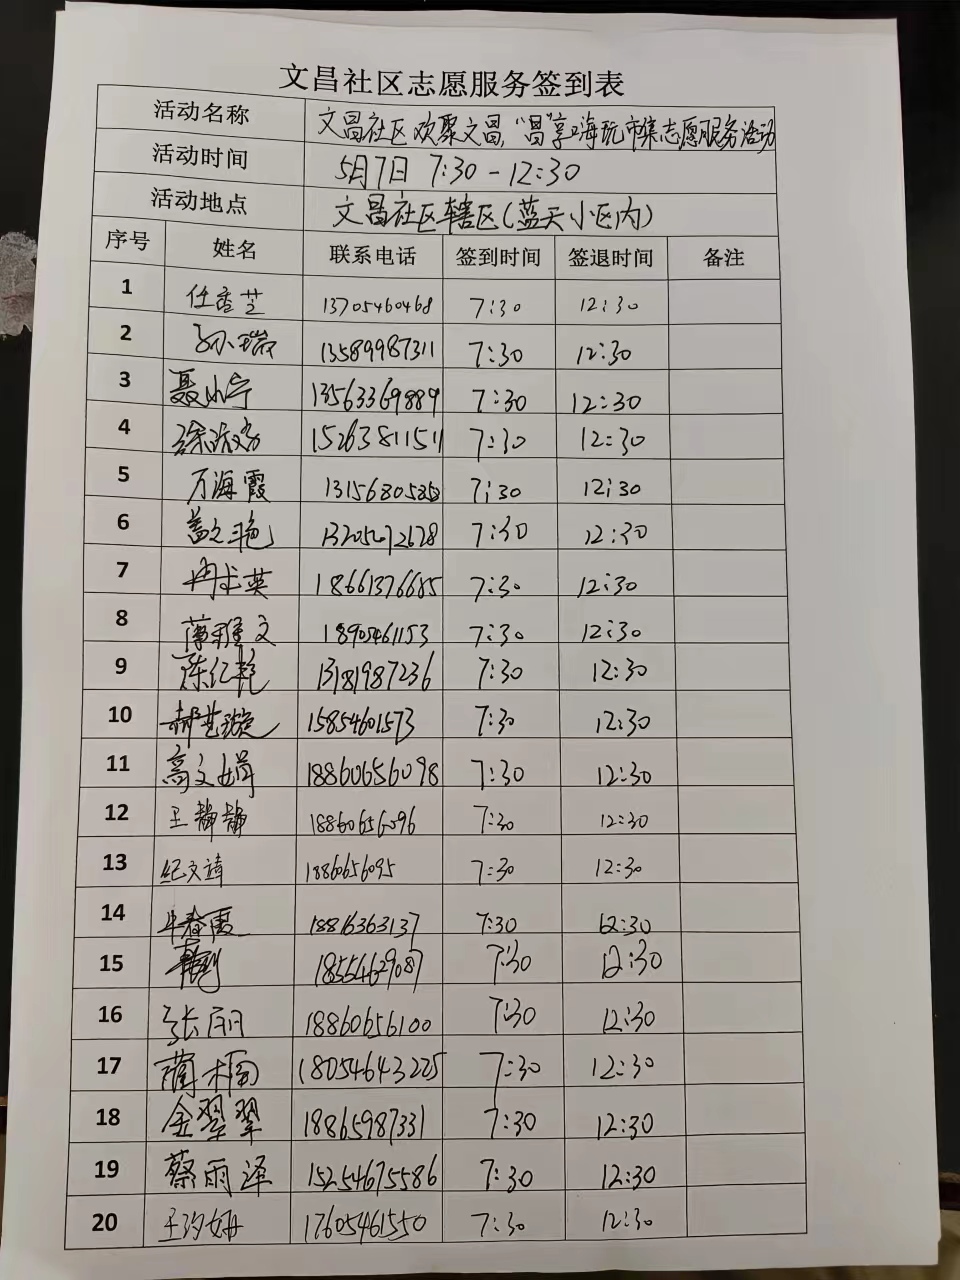 文昌社区志愿服务签到表
活动名称 文昌社区欢聚文昌,"昌"享嗨玩市集志愿服务活动
活动时间 5月7日 7:30-12:30
活动地点 文昌社区辖区(蓝天小区内)
序号 姓名 联系电话 签到时间 签退时间 备注
1 任香芝 13705460468 7:30 12:30
2 孙瑞 13589987311 7:30 12:30
3 聂小宁 13563369889 7:30 12:30
4 15263811511 7:30 12:30
5 万海霞 7:30 12:30
6 盖文艳 7:30 12:30
7 冉求英 18661376685 7:30 12:30
8 薄雅文 18905461153 7:30 12:30
9 陈红艳 13181987236 7:30 12:30
10 郝艺璇 15854601573 7:30 12:30
11 高文娟 18860656098 7:30 12:30
12 王静静 18860656096 7:30 12:30
13 纪文靖 18860656095 7:30 12:30
14 牛春霞 18816363137 7:30 12:30
15 18554629087 7:30 12:30
16 张丽 18860656100 7:30 12:30
17 蔺楠 18054643225 7:30 12:30
18 金翠翠 18865987331 7:30 12:30
19 蔡雨泽 15254675586 7:30 12:30
20 王汐妍 17605461550 7:30 12:30